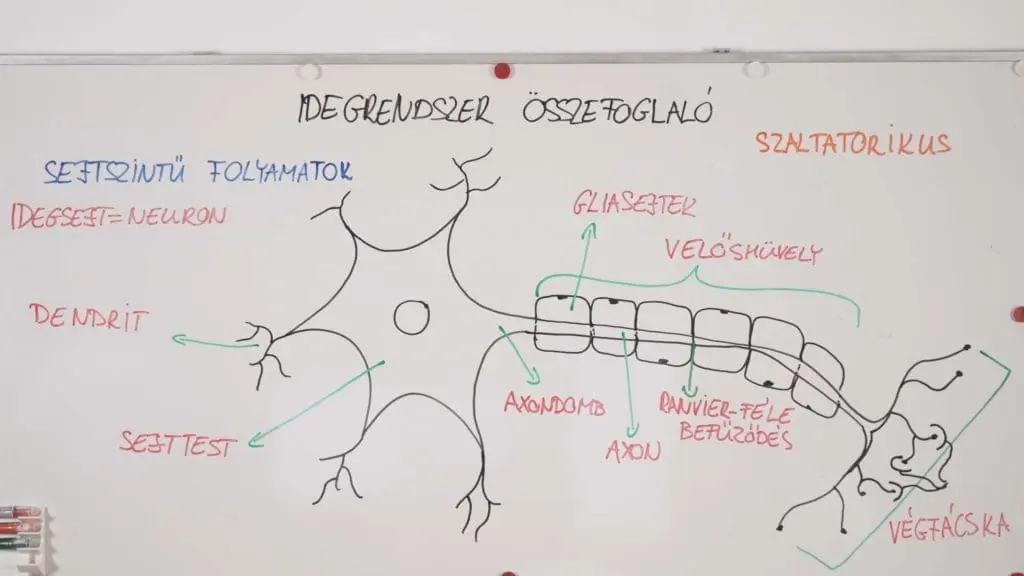 IDEGRENDSZER ÖSSZEFOGLALÓ
SZALTATORIKUS
SEJTSZINTŰ FOLYAMATOK
IDEGSEJT=NEURON
GLIASEJTEK
VELŐSHÜVELY
DENDRIT
AXONDOMB
RANVIER-FÉLE
BEFŰZŐDÉS
SEJTTEST
AXON
VÉGFÁCSKA